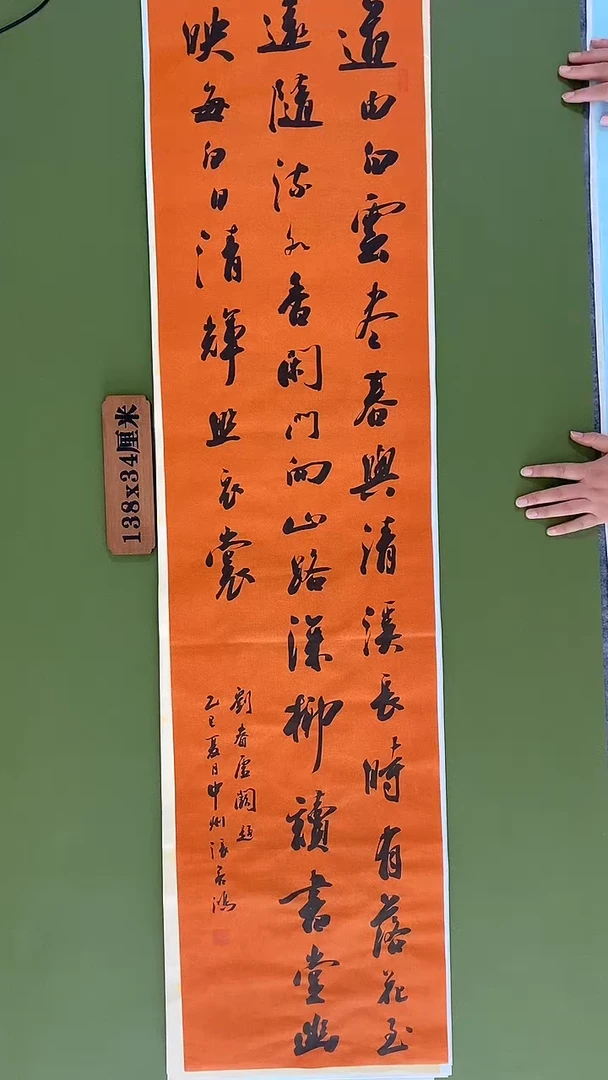 道由白雲尽春與清溪長時有落花至
遠隨流水香閑門向山路深柳讀書堂幽
映每白日清輝照衣裳
劉昚虛闕題
乙巳夏日中州張鴻
138x34厘米